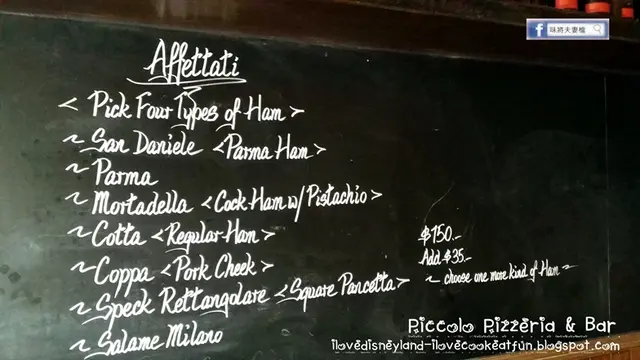 f 味將夫妻檔
Affettati
< Pick Four Types of Ham >
~ San Daniele <Parma Ham>
~ Parma
~ Mortadella <Cock Ham w/ Pistachio>
~ Cotta <Regular Ham>
~ Coppa <Pork Cheek>
~ Speck Rettangolare <Square Pancetta>
~ Salame Milano
$150.-
Add $35.-
~ choose one more kind of Ham ~
Piccolo Pizzeria & Bar
ilovedisneyland-ilovecookeatfun.blogspot.com